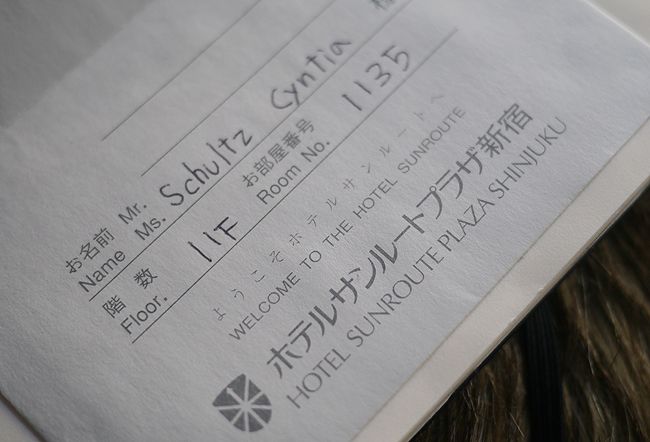 お名前 Mr. 様
Name Ms. Schultz Cyntia
階 数 お部屋番号
Floor. 11F Room No. 1135
ようこそホテルサンルートへ
WELCOME TO THE HOTEL SUNROUTE
ホテルサンルートプラザ新宿
HOTEL SUNROUTE PLAZA SHINJUKU